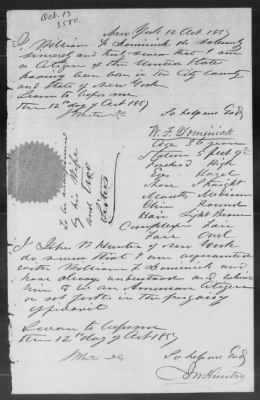 Oct. 13
3580.
New York 12 Oct 1857
I William F Dominick do solemnly
sincerely and truly swear that I am
a Citizen of the United States
having been born in the City County
and State of New York
Sworn to before me
this 12th day of Oct 1857
So help me God
W. F. Dominick
Age 36 years
Stature 5 feet
Forehead High
Eyes Hazel
Nose Straight
Mouth Medium
Chin Round
Hair Light Brown
Complexion Fair
Face Oval
To be accompanied
by his Wife
and two
Sisters
I John N Hunter of New York
do swear that I am acquainted
with William F Dominick and
have always understood and believe
him to be an American Citizen
as set forth in the foregoing
affidavit
Sworn to before me
this 12th day of Oct 1857
So help me God